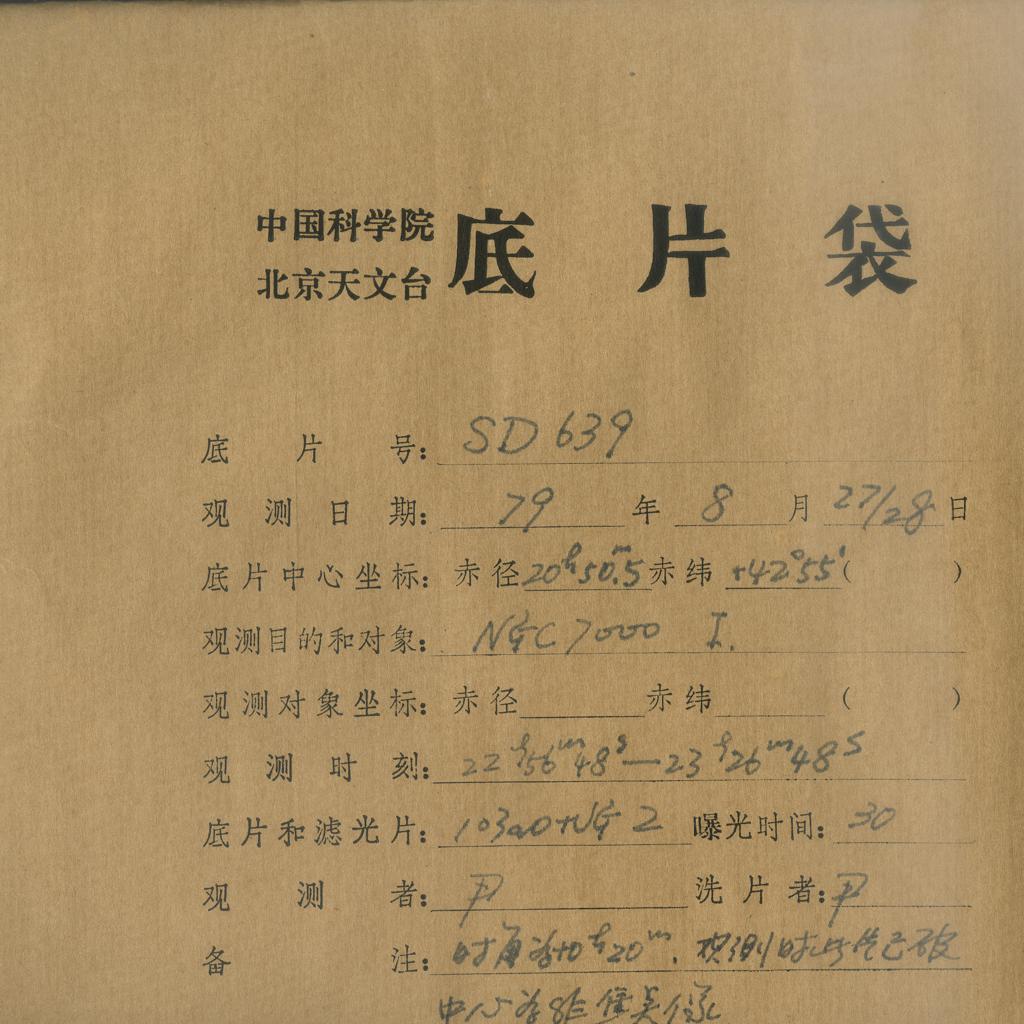 中国科学院
北京天文台 底片袋
底片号：SD 639
观测日期：79年8月27/28日
底片中心坐标：赤径20ʰ50ᵐ.5赤纬+42°55′（ ）
观测目的和对象：NGC7000 I.
观测对象坐标：赤径 赤纬 （ ）
观测时刻：22ʰ56ᵐ48ˢ—23ʰ26ᵐ48ˢ
底片和滤光片：103aO+NG 2 曝光时间：30
观测者：尹 洗片者：尹
备注：时角 +0ʰ20ᵐ. 时此片已破
中心 焦